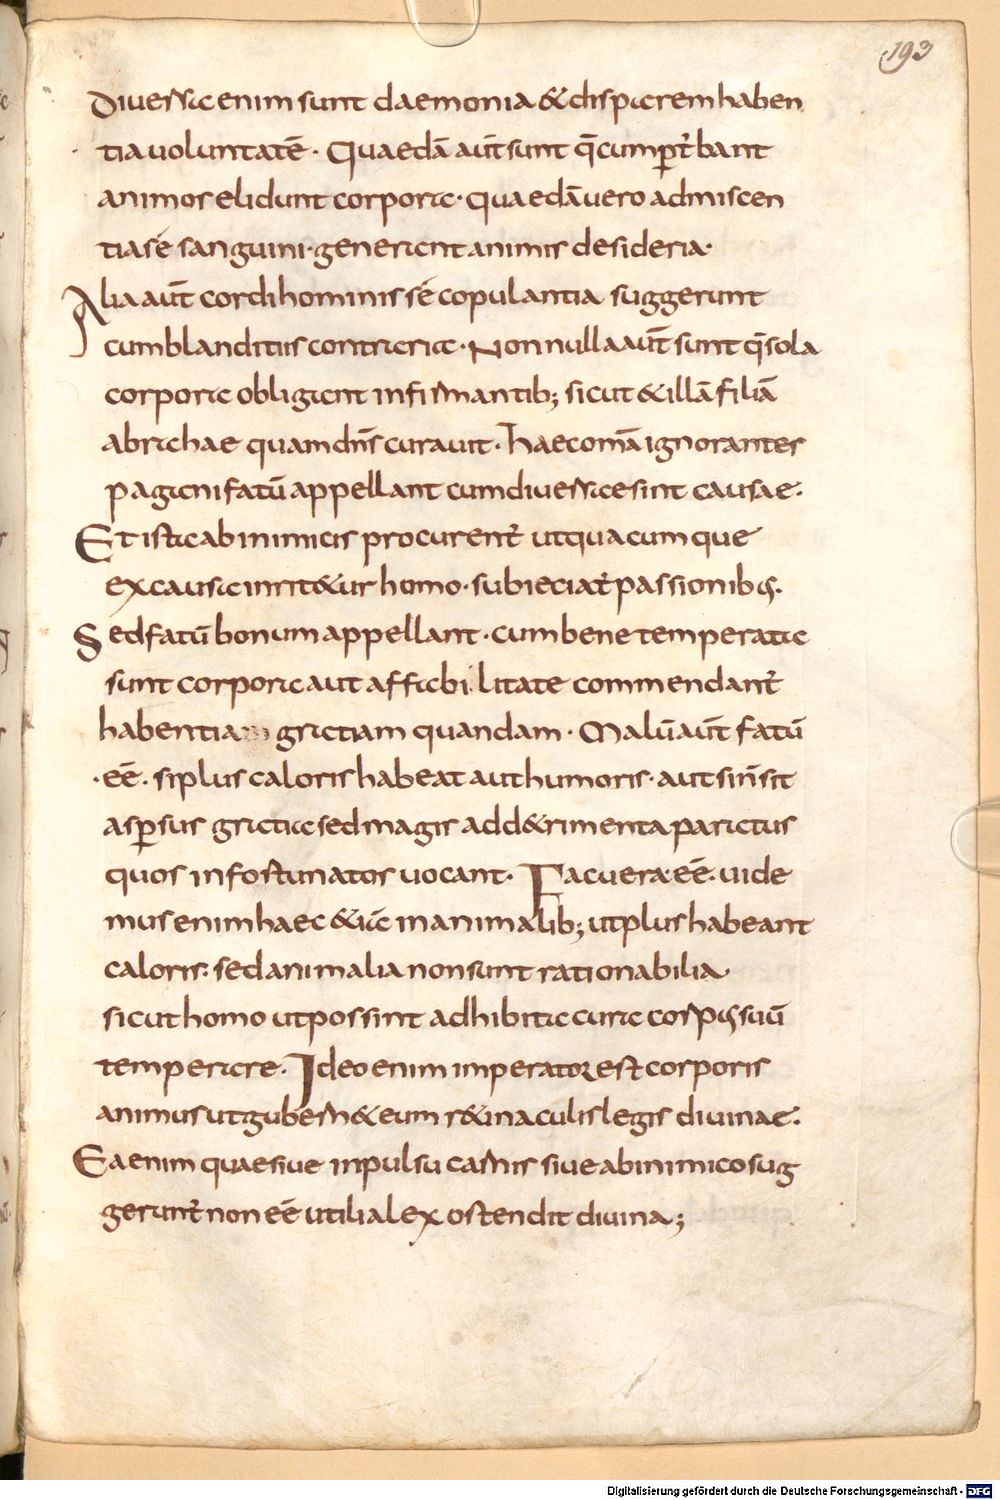 193
Diuersa enim sunt daemonia & disparem haben
tia uoluntatē. Quaedā aut̄ sunt q̄ cum ꝑt̉bant
animos elidunt corpora. quaedā uero admiscen
tia se sanguini. generant animis desideria.
Alia aut̄ cordi hominis sé copulantia suggerunt
cum blanditiis contraria. Non nulla aut̄ sunt q̄ sola
corpora obligant infirmantib; sicut & illā filiā
abrahae quam dn̄s curauit. haec omā ignorantes
pagani fatū appellant cum diuersae sint causae.
Et ista ab inimicis procurent̉ ut quacumque
ex causa inrit&ur homo. subieciat̉ passionibꝯ.
Sed fatū bonum appellant. cum bene temperata
sunt corpora aut affabilitate commendant̉
habentia gratiam quandam. Malū aut̄ fatū
.eē. si plus caloris habeat aut humoris. aut si n̄ sit
asꝑsus gratia sed magis ad d&rimenta paratus
quos infortunatos uocant. Fac uera eē. uide
mus enim haec & iā in animalib; ut plus habeant
caloris. sed animalia non sunt rationabilia.
sicut homo ut possint adhibita cura corpꝯ suū
temperare. Ideo enim imperator est corporis
animus ut gubern& eum r&inaculis legis diuinae.
Ea enim quae siue inpulsu carnis siue ab inimico sug
gerunt̉ non eē utilia lex ostendit diuina;
Digitalisierung gefördert durch die Deutsche Forschungsgemeinschaft - DFG